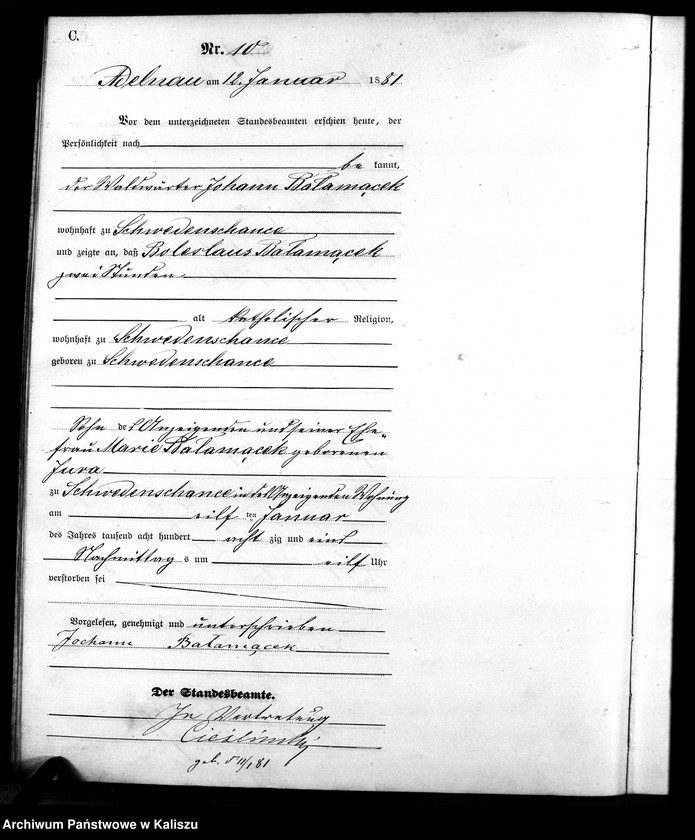 C.
Nr. 10
Adelnau am 12. Januar 1881
Vor dem unterzeichneten Standesbeamten erschien heute, der
Persönlichkeit nach
be kannt,
der Waldwärter Johann Bałamącek
wohnhaft zu Schwedenschance
und zeigte an, daß Boleslaus Bałamącek
zwei Stunden
alt katholischer Religion,
wohnhaft zu Schwedenschance
geboren zu Schwedenschance
Sohn des Anzeigenden und seiner Ehe-
frau Marie Bałamącek geborenen
Jura
zu Schwedenschance in des Anzeigenden Wohnung
am eilf ten Januar
des Jahres tausend acht hundert acht zig und eins
Nachmittag s um eilf Uhr
verstorben sei
Vorgelesen, genehmigt und unterschrieben
Jochann Bałamącek
Der Standesbeamte.
In Vertretung
Cieślinski
geb. d 11/1 81
Archiwum Państwowe w Kaliszu